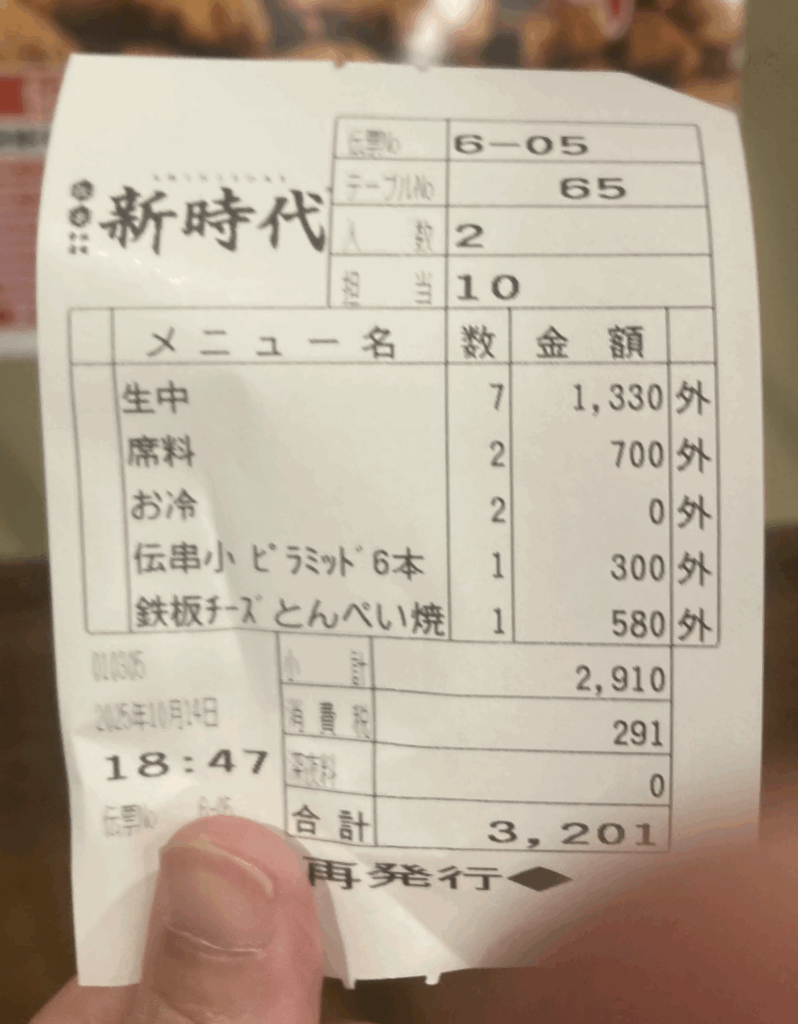 新時代
伝票No 6-05
テーブルNo 65
人数 2
担当 10
メニュー名 数 金額
生中 7 1,330 外
席料 2 700 外
お冷 2 0 外
伝串小ﾋﾟﾗﾐｯﾄﾞ6本 1 300 外
鉄板ﾁｰｽﾞとんぺい焼 1 580 外
小計 2,910
消費税 291
深夜料 0
合計 3,201
010305
2025年10月14日
18:47
伝票No 6-05
再発行◆